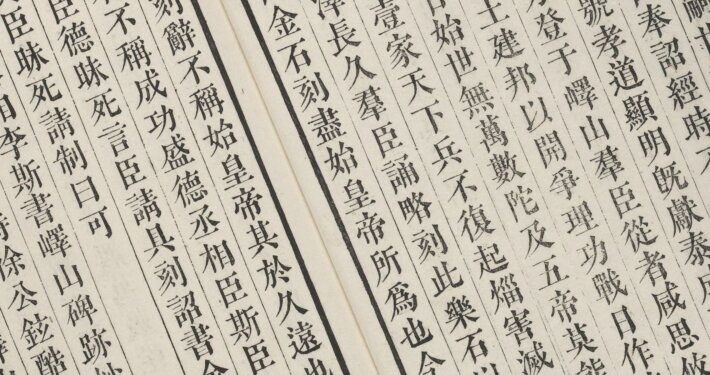 嗣世
奉詔經時不
號孝道顯明旣獻泰成
登于嶧山羣臣從者咸思攸
土建邦以開爭理功戰日作
自始世無萬數陀及五帝莫能
壹家天下兵不復起害滅
澤長久羣臣誦略刻此樂石
金石刻盡始皇帝所爲也今
刻辭不稱始皇帝其於久遠也
不稱成功盛德丞相臣斯臣
臣德昧死言臣請具刻詔書金
臣昧死請制曰可
李斯書嶧山碑跡妙
徐公鉉酷